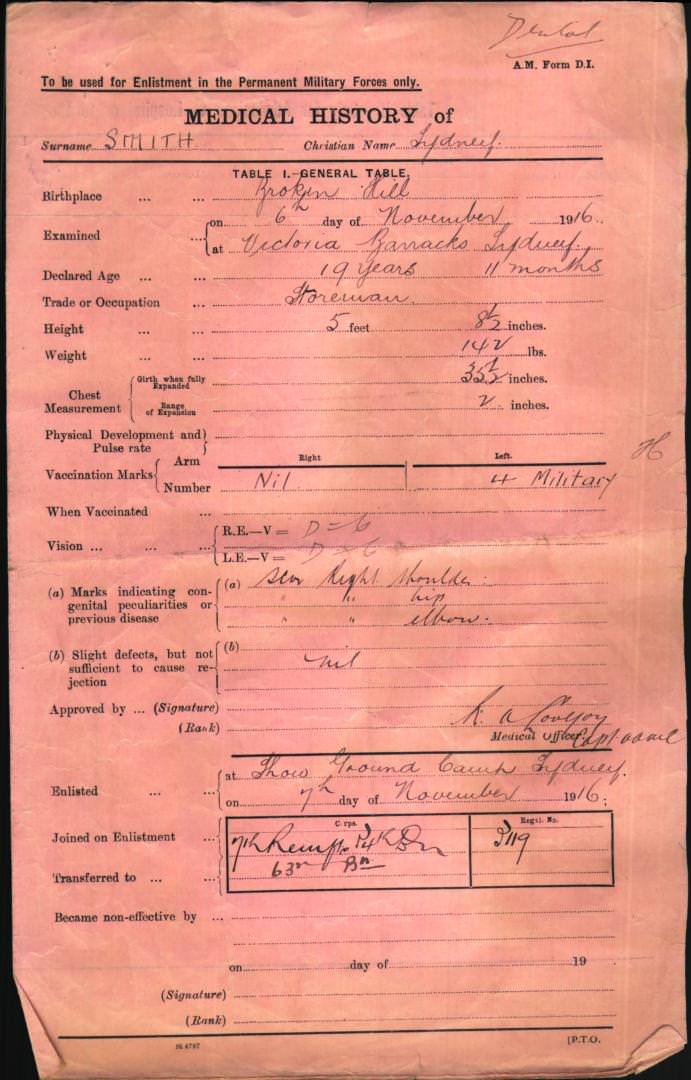 Dental
A.M. Form D.I.
To be used for Enlistment in the Permanent Military Forces only.
MEDICAL HISTORY of
Surname SMITH Christian Name Sydney.
TABLE I.—GENERAL TABLE.
Birthplace ... ... Broken Hill
Examined ... on 6th day of November 1916.
at Victoria Barracks Sydney.
Declared Age ... ... 19 years 11 months
Trade or Occupation ... Storeman.
Height ... ... 5 feet 8½ inches.
Weight ... ... 142 lbs.
Chest Measurement
Girth when fully Expanded 35½ inches.
Range of Expansion 2. inches.
Physical Development and Pulse rate
Right Left.
Vaccination Marks
Arm
Number Nil 4 Military
H
When Vaccinated ...
Vision ... ... ...
R.E.—V = D = 6
L.E.—V = D = 6
(a) Marks indicating con-
genital peculiarities or
previous disease
(a) scar Right Shoulder.
" " hip
" " elbow.
(b) Slight defects, but not
sufficient to cause re-
jection
(b)
nil
Approved by ... (Signature)
(Rank)
Medical Officer.
Enlisted ...
at Show Ground Camp Sydney.
on 7th day of November 1916.
Corps. Regtl. No.
Joined on Enlistment ... 7th 4th Bn 3119
Transferred to ... ... 63rd Bn
Became non-effective by ...
on day of 19
(Signature)
(Rank)
St.4797 [P.T.O.